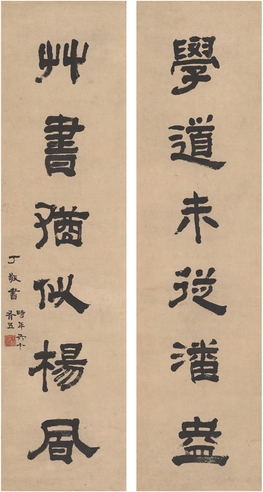 學道未從潘盎
艸書猶似楊風
丁敬書
時年六十有五